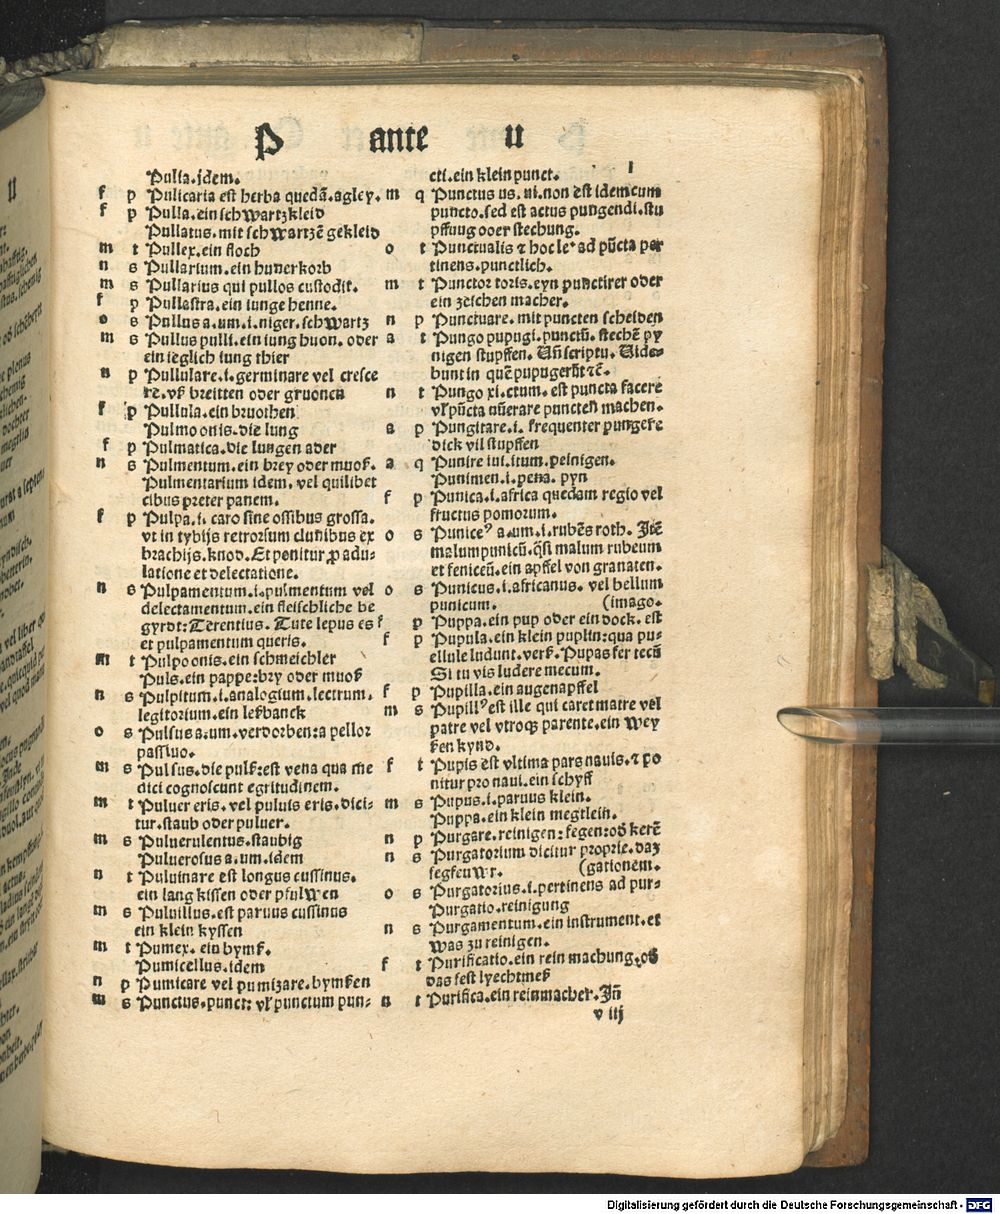 P ante u
Pulla.idem.
f p Pulicaria est herba quedã.agley.
f p Pulla.ein schwartzkleid
Pullatus.mit schwartzẽ gekleid
m t Pullex.ein floch
n s Pullarium.ein hunerkorb
m s Pullarius qui pullos custodit.
f p Pullastra.ein iunge henne.
o s Pullus a.um.i.niger.schwartz
m s Pullus pulli.ein iung huon.oder
ein ieglich iung thier
n p Pullulare.i.germinare vel cresce
re.vß breitten oder gruonen
f p Pullula.ein bruothen
Pulmo onis.die lung
f p Pulmatica.die lungen ader
n s Pulmentum.ein brey oder muoß.
Pulmentarium idem.vel quilibet
cibus preter panem.
f p Pulpa.i.caro sine ossibus grossa.
vt in tybijs retrorsum clunibus ex
brachijs.knod.Et ponitur ꝓ adu-
latione et delectatione.
n s Pulpamentum.i.pulmentum vel
delectamentum.ein fleischliche be
gyrdt:Terentius.Tute lepus es
et pulpamentum queris.
m t Pulpo onis.ein schmeichler
Puls.ein pappe:bry oder muoß
n s Pulpitum.i.analogium.lectrum.
legitorium.ein leßbanck
o s Pulsus a.um.verdorben:a pellor
passiuo.
m s Pulsus.die pulß:est vena qua me
dici cognoscunt egritudinem.
m t Puluer eris.vel puluis eris.dici-
tur.staub oder puluer.
m s Puluerulentus.staubig
Puluerosus a.um.idem
n t Puluinare est longus cussinus.
ein lang kissen oder pfulwen
m s Puluillus.est paruus cussinus
ein klein kyssen
m t Pumex.ein bymß.
Pumicellus.idem
n p Pumicare vel pumizare.bymßen
m s Punctus.punct: vel punctum pun-
cti.ein klein punct.
m q Punctus us.ui.non est idem cum
puncto.sed est actus pungendi.stu
pffung oder stechung.
o t Punctualis ⁊ hoc le.ad pũcta per
tinens.punctlich.
m t Punctor toris.eyn punctirer oder
ein zeichen macher.
n p Punctuare.mit puncten scheiden
a t Pungo pupugi.punctũ.stechẽ py
nigen stupffen. Uñ scriptu.Uide-
bunt in quẽ pupugerũt ⁊c̃.
n t Pungo xi.ctum.est puncta facere
vel pũcta nũerare puncten machen.
a p Pungitare.i.frequenter pungere
dick vil stupffen
a q Punire iui.itum.peinigen.
Punimen.i.pena.pyn
f p Punica.i.africa quedam regio vel
fructus pomorum.
o s Puniceꝰ a.um.i.rubẽs roth. Itẽ
malumpunicũ.q̃si malum rubeum
et feniceũ.ein apffel von granaten.
o s Punicus.i.africanus.vel bellum
punicum. (imago.
f p Puppa.ein pup oder ein dock.est
f p Pupula.ein klein puplin:qua pu-
ellule ludunt.verß.Pupas fer tecũ
Si tu vis ludere mecum.
f p Pupilla.ein augenapffel
m s Pupillꝰ est ille qui caret matre vel
patre vel vtroqꝫ parente.ein wey
ßen kynd.
f t Pupis est vltima pars nauis.⁊ po
nitur pro naui.ein schyff
m s Pupus.i.paruus klein.
Puppa.ein klein megtlein.
n p Purgare.reinigen:fegen:od̕ kerẽ
n s Purgatorium dicitur proprie.daz
fegfeuwr. (gationem.
o s Purgatorius.i.pertinens ad pur-
Purgatio.reinigung
n s Purgamentum.ein instrument.et
was zu reinigen.
f t Purificatio.ein rein machung.od̕
das fest lyechtmeß
n t Purifica.ein reinmacher.Jñ
v iij
Digitalisierung gefördert durch die Deutsche Forschungsgemeinschaft - DFG